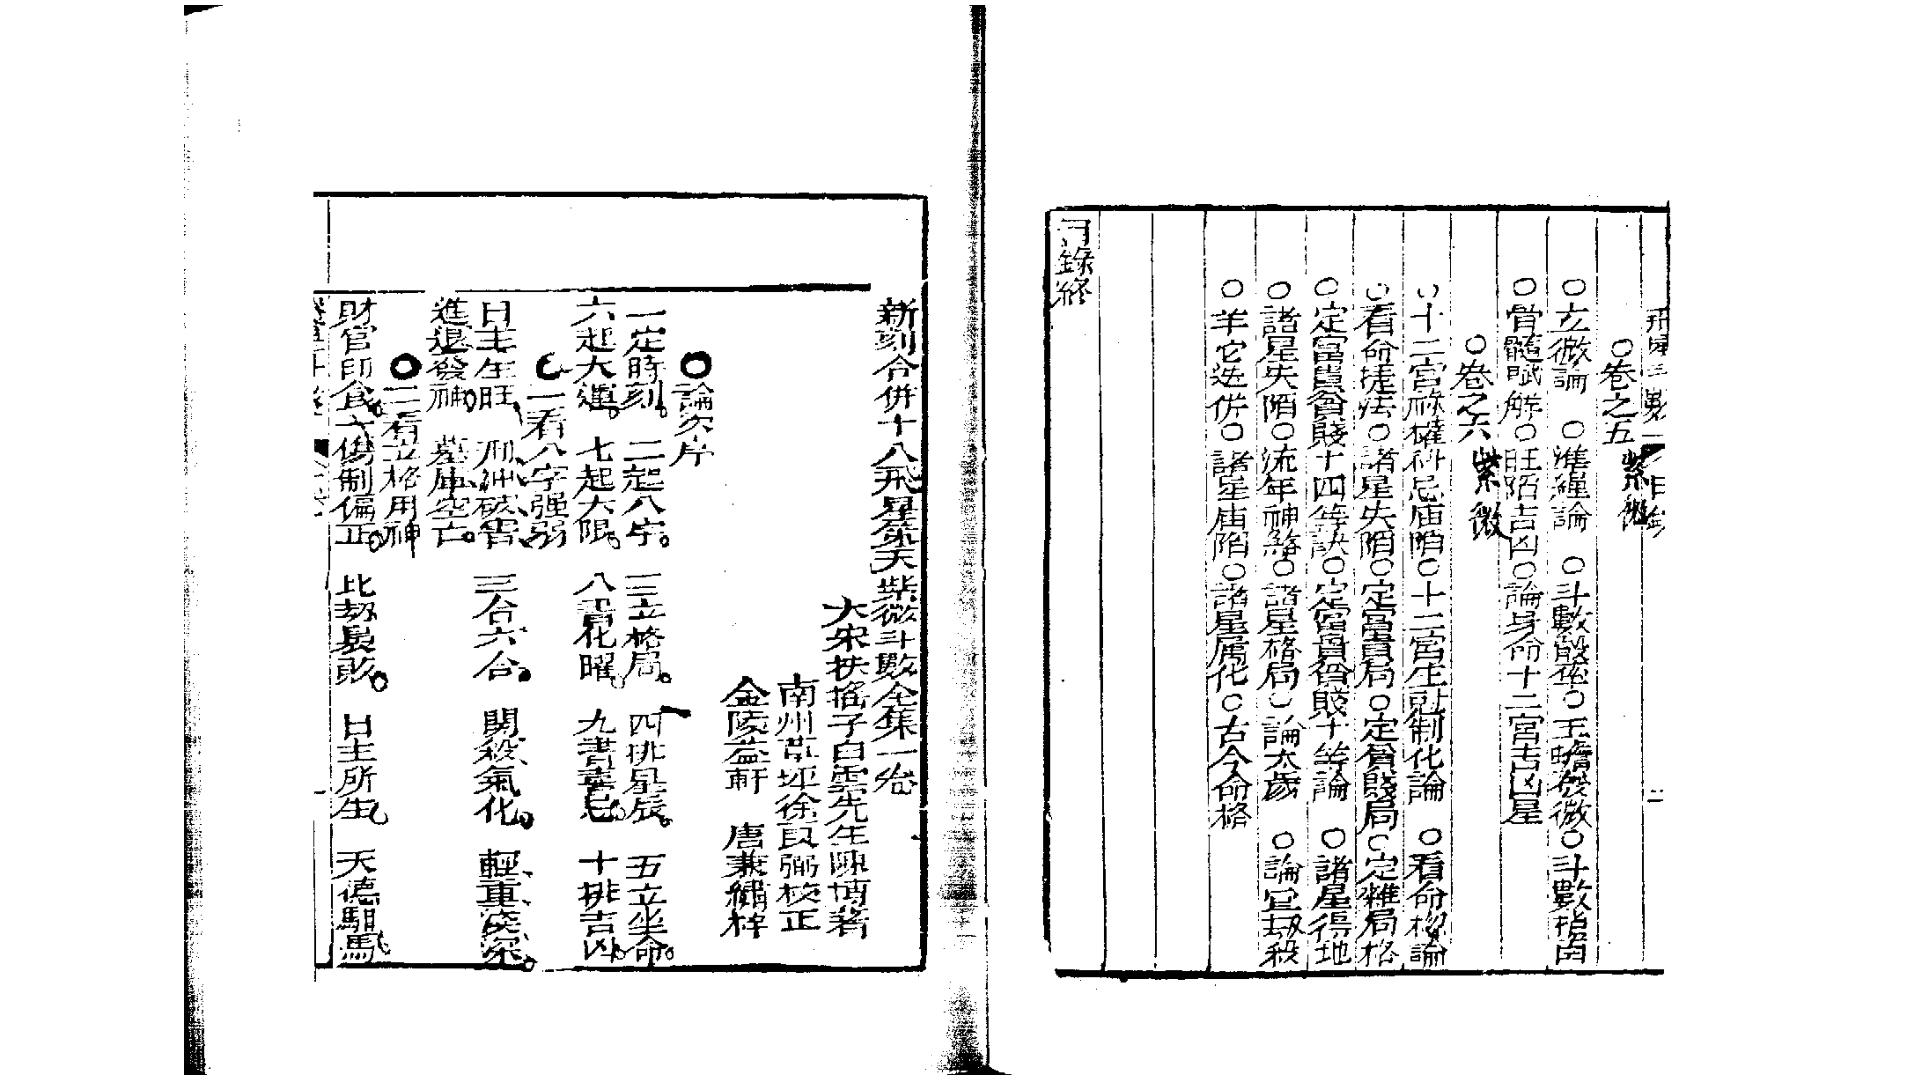 ○卷之五
紫微
○玄微論　○準繩論　○斗數骰率○玉蟾發微○斗數指南
○骨髓賦解○旺陷吉凶○論身命十二宮吉凶星
○卷之六
紫微
○十二宮祿權科忌庙陷○十二宮生尅制化論　○看命樞論
○看命捷法○諸星失陷○定富貴局○定貧賤局○定雜局格
○定富貴貧賤十四等訣○定富貴貧賤十等論　○諸星得地
○諸星失陷○流年神煞○諸星格局○論太歲　○論宜刼殺
○羊它迭併○諸星庙陷○諸星属化○古今命格
目錄終
新刻合併十八飛星策天紫微斗數全集一卷
大宋扶搖子白雲先生陳摶著
南州草坪徐良弼校正
金陵益軒　唐兼繡梓
○論次序
一定時刻。二起八字。三立格局。四排星辰。五立坐命。
六起大運。七起大限。八書化曜。九書喜忌。十排吉凶。
○一看八字強弱
日主生旺、刑沖破害、三合六合。開殺氣化。輕重淺深。
進退發神。墓庫空亡。
○二看立格用神
財官印食。六傷制偏正。比刼敗財。日主所生。天德馹馬。